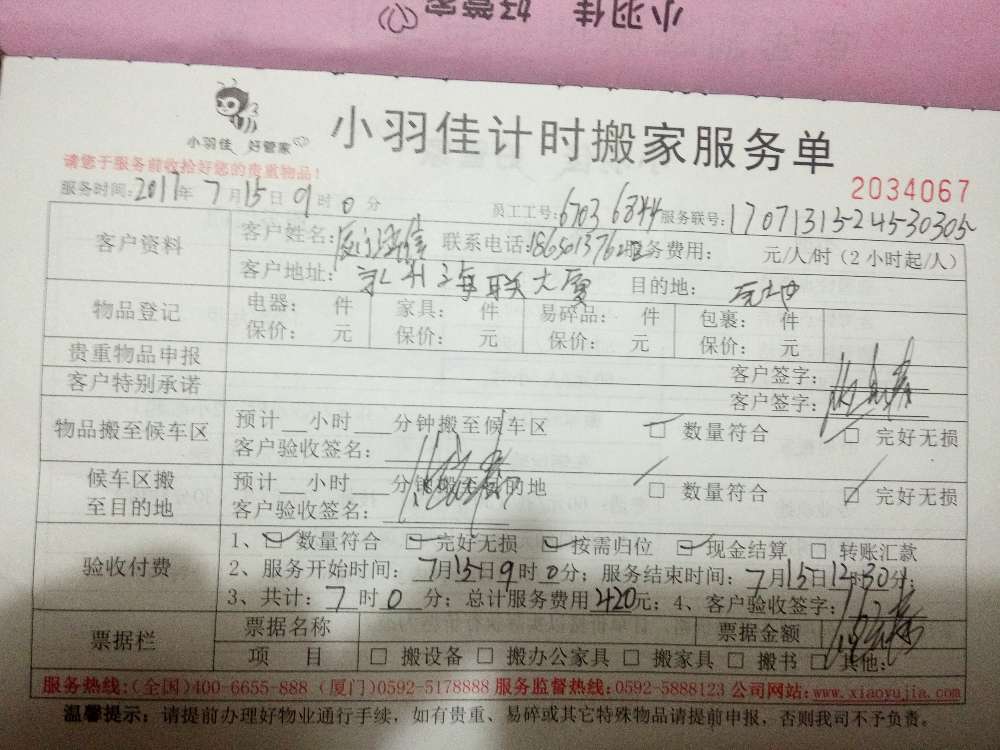 小羽佳 好管家
小羽佳 好管家
小羽佳计时搬家服务单
请您于服务前收拾好您的贵重物品!
2034067
服务时间:2017年7月15日9时0分 员工工号:6703 6844 服务联号:1707131524530305
客户资料 客户姓名: 联系电话: 服务费用: 元/人/时(2小时起/人)
客户地址: 海联大厦 目的地:
物品登记 电器: 件 家具: 件 易碎品: 件 包裹: 件
保价: 元 保价: 元 保价: 元 保价: 元
贵重物品申报 客户签字:
客户特别承诺 客户签字:
物品搬至候车区 预计__小时___分钟搬至候车区 □ 数量符合 □ 完好无损
客户验收签名:
候车区搬至目的地 预计__小时___分钟搬至目的地 □ 数量符合 □ 完好无损
客户验收签名:
验收付费 1、☑ 数量符合 ☑ 完好无损 ☑ 按需归位 ☑ 现金结算 □ 转账汇款
2、服务开始时间:7月15日9时0分;服务结束时间:7月15日12时30分;
3、共计:7时0分;总计服务费用420元;4、客户验收签字:
票据栏 票据名称 票据金额
项 目 □ 搬设备 □ 搬办公家具 □ 搬家具 □ 搬书 □ 其他:
服务热线:(全国)400-6655-888 (厦门)0592-5178888 服务监督热线:0592-5888123 公司网站:www.xiaoyujia.com
温馨提示:请提前办理好物业通行手续,如有贵重、易碎或其它特殊物品请提前申报,否则我司不予负责。